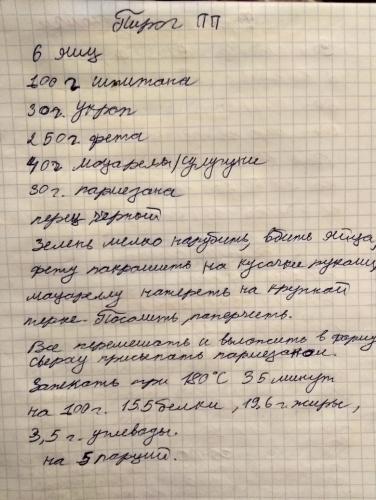 Пирог ПП
6 яиц
100 г шпината
30 г. укроп
250 г. фета
40 г моцарелы/сулугуни
30 г. пармезана
перец черный
Зелень мелко нарубить, вбить яйца,
фету покрошить на кусочки руками,
моцареллу натереть на крупной
терке. Посолить, поперчить.
Все перемешать и выложить в форму
сверху присыпать пармезаном.
Запекать при 180°С 35 минут
на 100 г. 15,5 белки, 19,6 г. жиры,
3,5 г. углеводы.
на 5 порций.